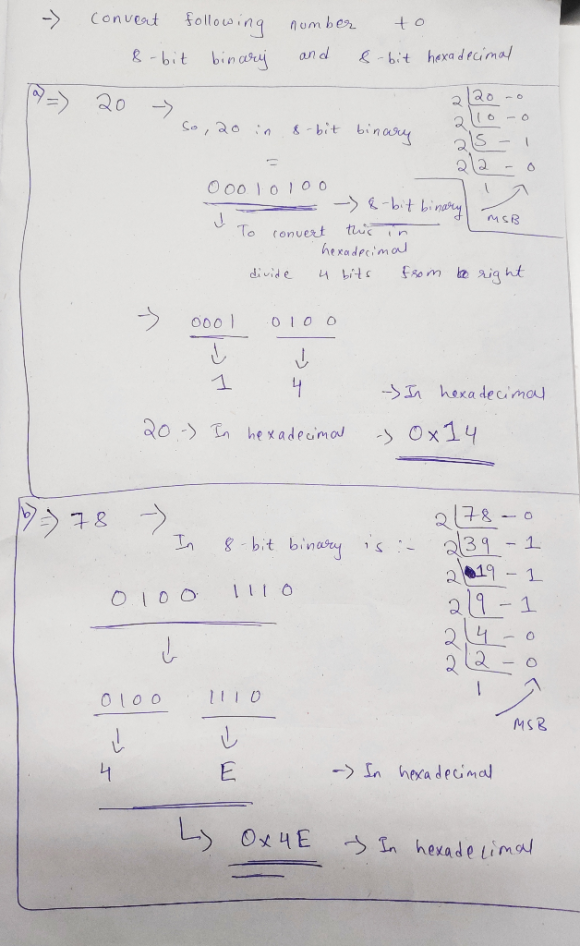 -> Convert following number to
8-bit binary and 8-bit hexadecimal
a) => 20 ->
So, 20 in 8-bit binary
=
00010100 -> 8-bit binary
2 20 - 0
2 10 - 0
2 5 - 1
2 2 - 0
1
MSB
↓ To convert this in
hexadecimal
divide 4 bits from right
-> 0001 0100
↓ ↓
1 4 -> In hexadecimal
20 -> In hexadecimal -> 0x14
b) => 78 ->
In 8-bit binary is :-
2 78 - 0
2 39 - 1
2 19 - 1
2 9 - 1
2 4 - 0
2 2 - 0
1
MSB
0100 1110
↓
0100 1110
↓ ↓
4 E -> In hexadecimal
↳ 0x4E -> In hexadecimal